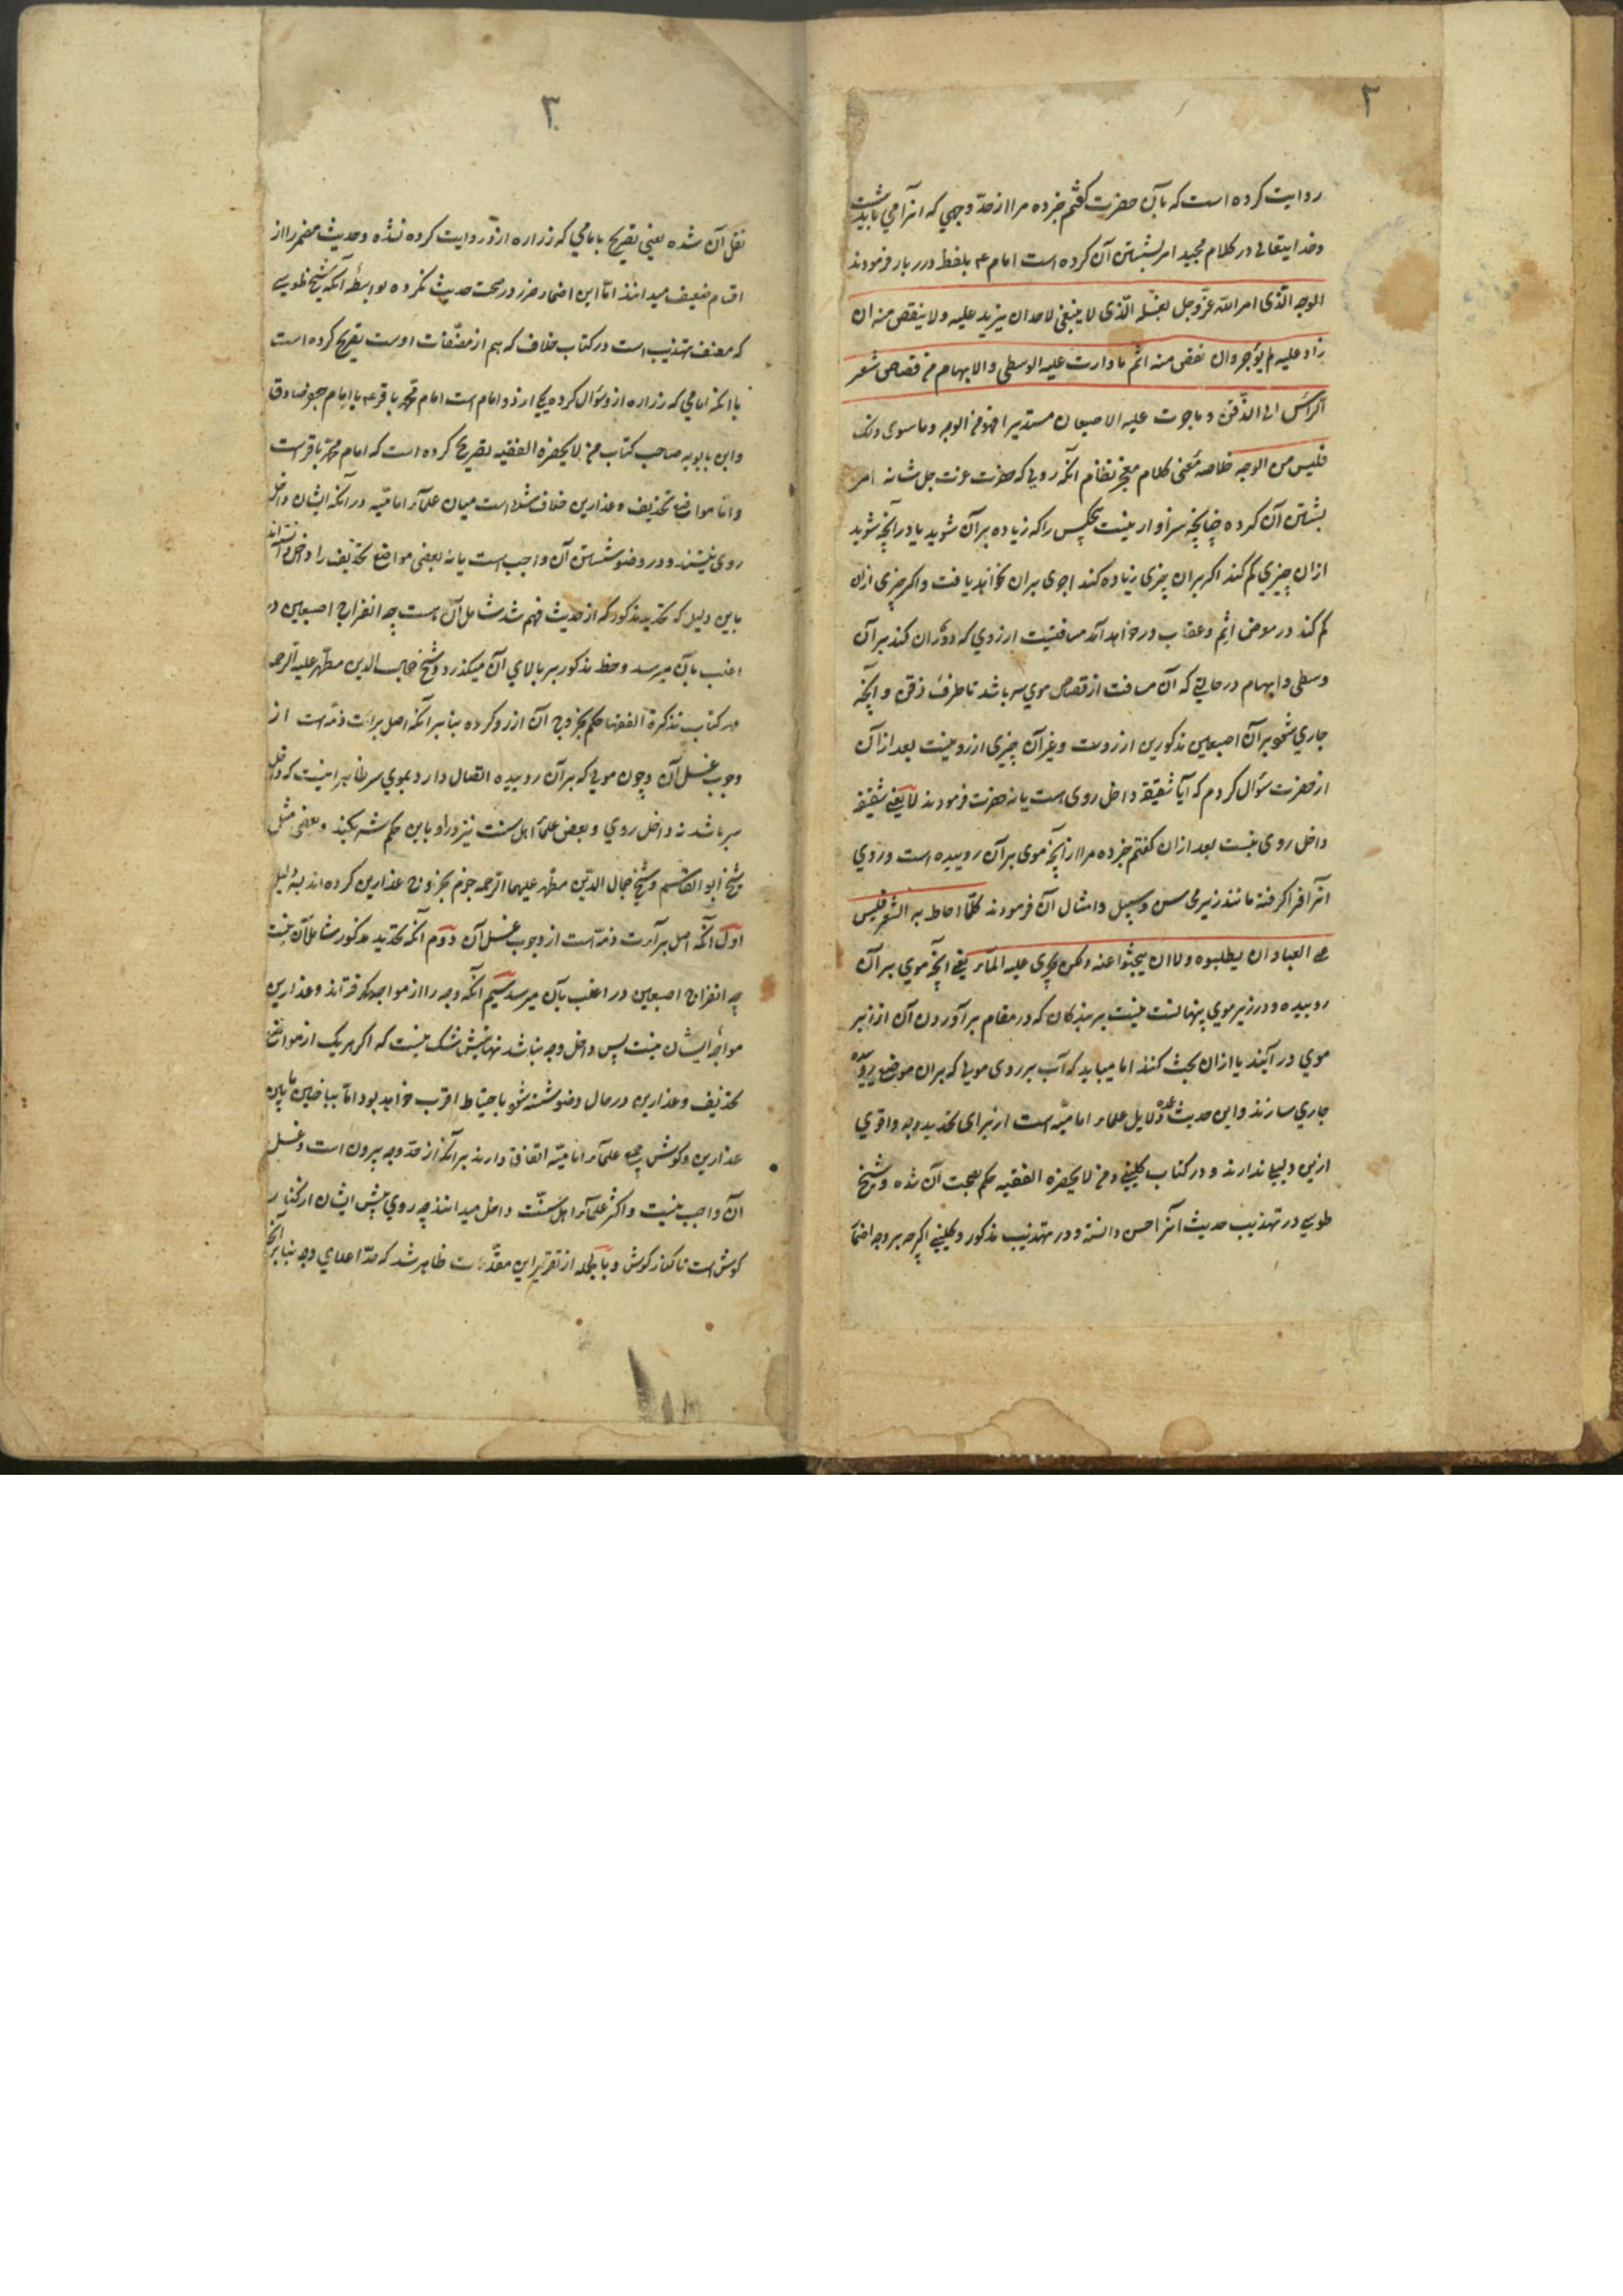 ۲
روایت کرده است که بآن حضرت کفتم خبر ده مرا از حدّ وجهی که انرا می باید شست
و خدایتعالی در کلام مجید امر بشستن آن کرده است امام ع بلفظ درر بار فرمودند
الوجه الّذی امر اللّه عزّ و جل بغسله الّذی لا ینبغی لاحد ان یزید علیه و لا ینقص منه ان
زاد علیه لم یؤجر و ان نقص منه اثم ما دارت علیه الوسطی و الابهام من قصاص شعر
الرّأس الی الذّقن و ما جرت علیه الاصبعان مستدیرا فهو من الوجه و ما سوی ذلک
فلیس من الوجه خلاصهٔ معنی کلام معجز نظام آنکه رویی که حضرت عزت جل شانه امر
بشستن آن کرده چنانچه سزاوار نیست هیچکس را که زیاده بر آن شوید یا در آنچه شوید
از ان چیزی کم کند اکر بران چیزی زیاده کند اجری بران نخواهد یافت و اکر چیزی ازان
کم کند در معرض اثم و عقاب در خواهد آمد مسافتیست از روی که دوران کند بر آن
وسطی و ابهام در حالتی که آن مسافت از قصاص موی سر باشد تا طرف ذقن و آنچه
جاری شود بر آن اصبعین مذکورین از روست و غیر آن چیزی از رو نیست بعد از آن
از حضرت سؤال کردم که آیا شقیقه داخل روی است یا نه حضرت فرمودند لا یعنی شقیقه
داخل روی نیست بعد ازان کفتم خبر ده مرا از آنچه موی بر آن روییده است و روی
آنرا فرا کرفته مانند زیر محاسن و سبیل و امثال آن فرمودند کلّما احاط به الشعر فلیس
علی العباد ان یطلبوه و لا ان یبحثوا عنه و لکن یجری علیه المآء یعنی آنچه موی بر آن
روییده و در زیر موی پنهانست نیست بر بندکان که در مقام بر آوردن آن از زیر
موی در آیند یا ازان بحث کنند اما میباید که آب بر روی مویی که بران موضع روییده
جاری سازند و این حدیث عمدهٔ دلایل علماء امامیّه است از برای تحدید وجه و اقوی
ازین دلیلی ندارند و در کتاب کلینی و من لا یحضره الفقیه حکم بصحت آن شده و شیخ
طوسی در تهذیب حدیث انرا حسن دانسته و در تهذیب مذکور و کلینی اکرچه بر وجه اضمار
۳
نقل آن شده یعنی تصریح بامامی که زراره ازو روایت کرده نشده و حدیث مضمر را از
اقسام ضعیف میدانند امّا این اضمار ضرر در صحت حدیث نکرده بواسطه آنکه شیخ طوسی
که مصنف تهذیب است در کتاب خلاف که هم از مصنّفات اوست تصریح کرده است
با انکه امامی که زراره ازو سؤال کرده یکی ازدو امام است امام محمّد باقر ع یا امام جعفر صادق
و ابن بابویه صاحب کتاب من لا یحضره الفقیه تصریح کرده است که امام محمّد باقر است
و امّا مواضع تحذیف و عذارین خلاف شده است میان علمآء امامیّه در آنکه ایشان داخل
روی نیستند و در وضو شستن آن واجب است یا نه بعضی مواضع تحذیف را داخل دانسته اند
باین دلیل که تحدید مذکور که از حدیث فهم شد شامل آن هست چه انفراج اصبعین در
اغلب بآن میرسد و خط مذکور بر بالای آن میکذرد و شیخ جمال الدین مطهّر علیه الرحمه
در کتاب تذکرة الفقها حکم بخروج آن از رو کرده بنا بر آنکه اصل برائت ذمّه است از
وجوب غسل آن و چون مویی که بر آن روییده اتصال دارد بموی سر ظاهر اینست که داخل
سر باشد نه داخل روی و بعض علمآء اهل سنت نیز در او باین حکم شریکند و بعضی مثل
شیخ ابو القاسم و شیخ جمال الدّین مطهر علیهما الرحمه جزم بخروج عذارین کرده اند بسه دلیل
اوّل آنکه اصل برآءت ذمّه است از وجوب غسل آن دوم آنکه تحدید مذکور شامل آن نیست
چه انفراج اصبعین در اغلب بآن میرسد سیّم آنکه وجه را از مواجهه کرفته اند و عذارین
مواجه ایشان نیست پس داخل وجه نباشد نهایتش شک نیست که اکر هریک از مواضع
تحذیف و عذارین در حال وضو شسته شود باحتیاط اقرب خواهد بود امّا بیاضی مابین
عذارین و کوش پس جمیع علمآء امامیّه اتفاق دارند بر آنکه از حدّ وجه بیرون است و غسل
آن واجب نیست و اکثر علمآء اهل سنّت داخل میدانند چه روی پیش ایشان از کنار
کوش است تا کنار کوش و بالجمله از تقریر این مقدّمات ظاهر شد که حدّ اعلای وجه بنا بر آنچه